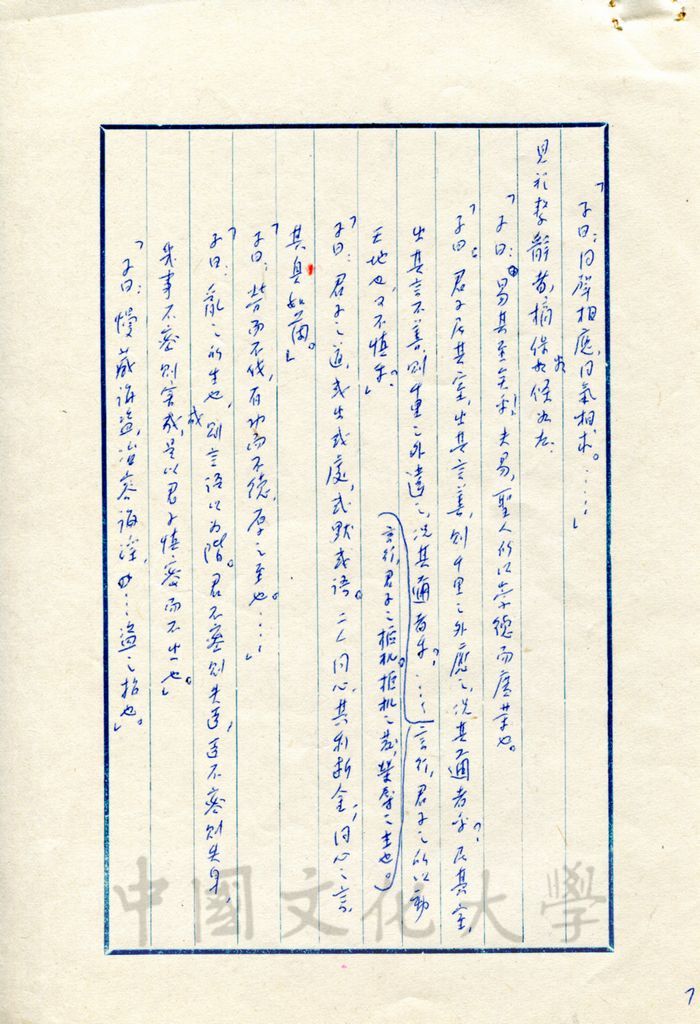 「子曰：同聲相應，同氣相求。……」
見於繫辭者，摘
「子曰：易其至矣乎！夫易，聖人所以崇德而廣業也。
「子曰：君子居其室，出其言善，則千里之外應之，況其邇者乎？居其室，
出其言不善，則千里之外違之，況其邇者乎？……言行，君子之所以動
（言行，君子之樞机。樞机之發，榮辱之主也。）
天地也，可不慎乎？」
「子曰：君子之道，或出或處，或默或語。二人同心，其利斷金，同心之言，
其臭如蘭。」
「子曰：勞而不伐，有功而不德，厚之至也。……」
「子曰：亂之所生也，則言語以為階。君不密則失臣，臣不密則失身，
失事不密則害成，是以君子慎密而不出也。」
成
「子曰：慢藏誨盜，冶容誨淫，……盜之招也。」
7
中國文化大學